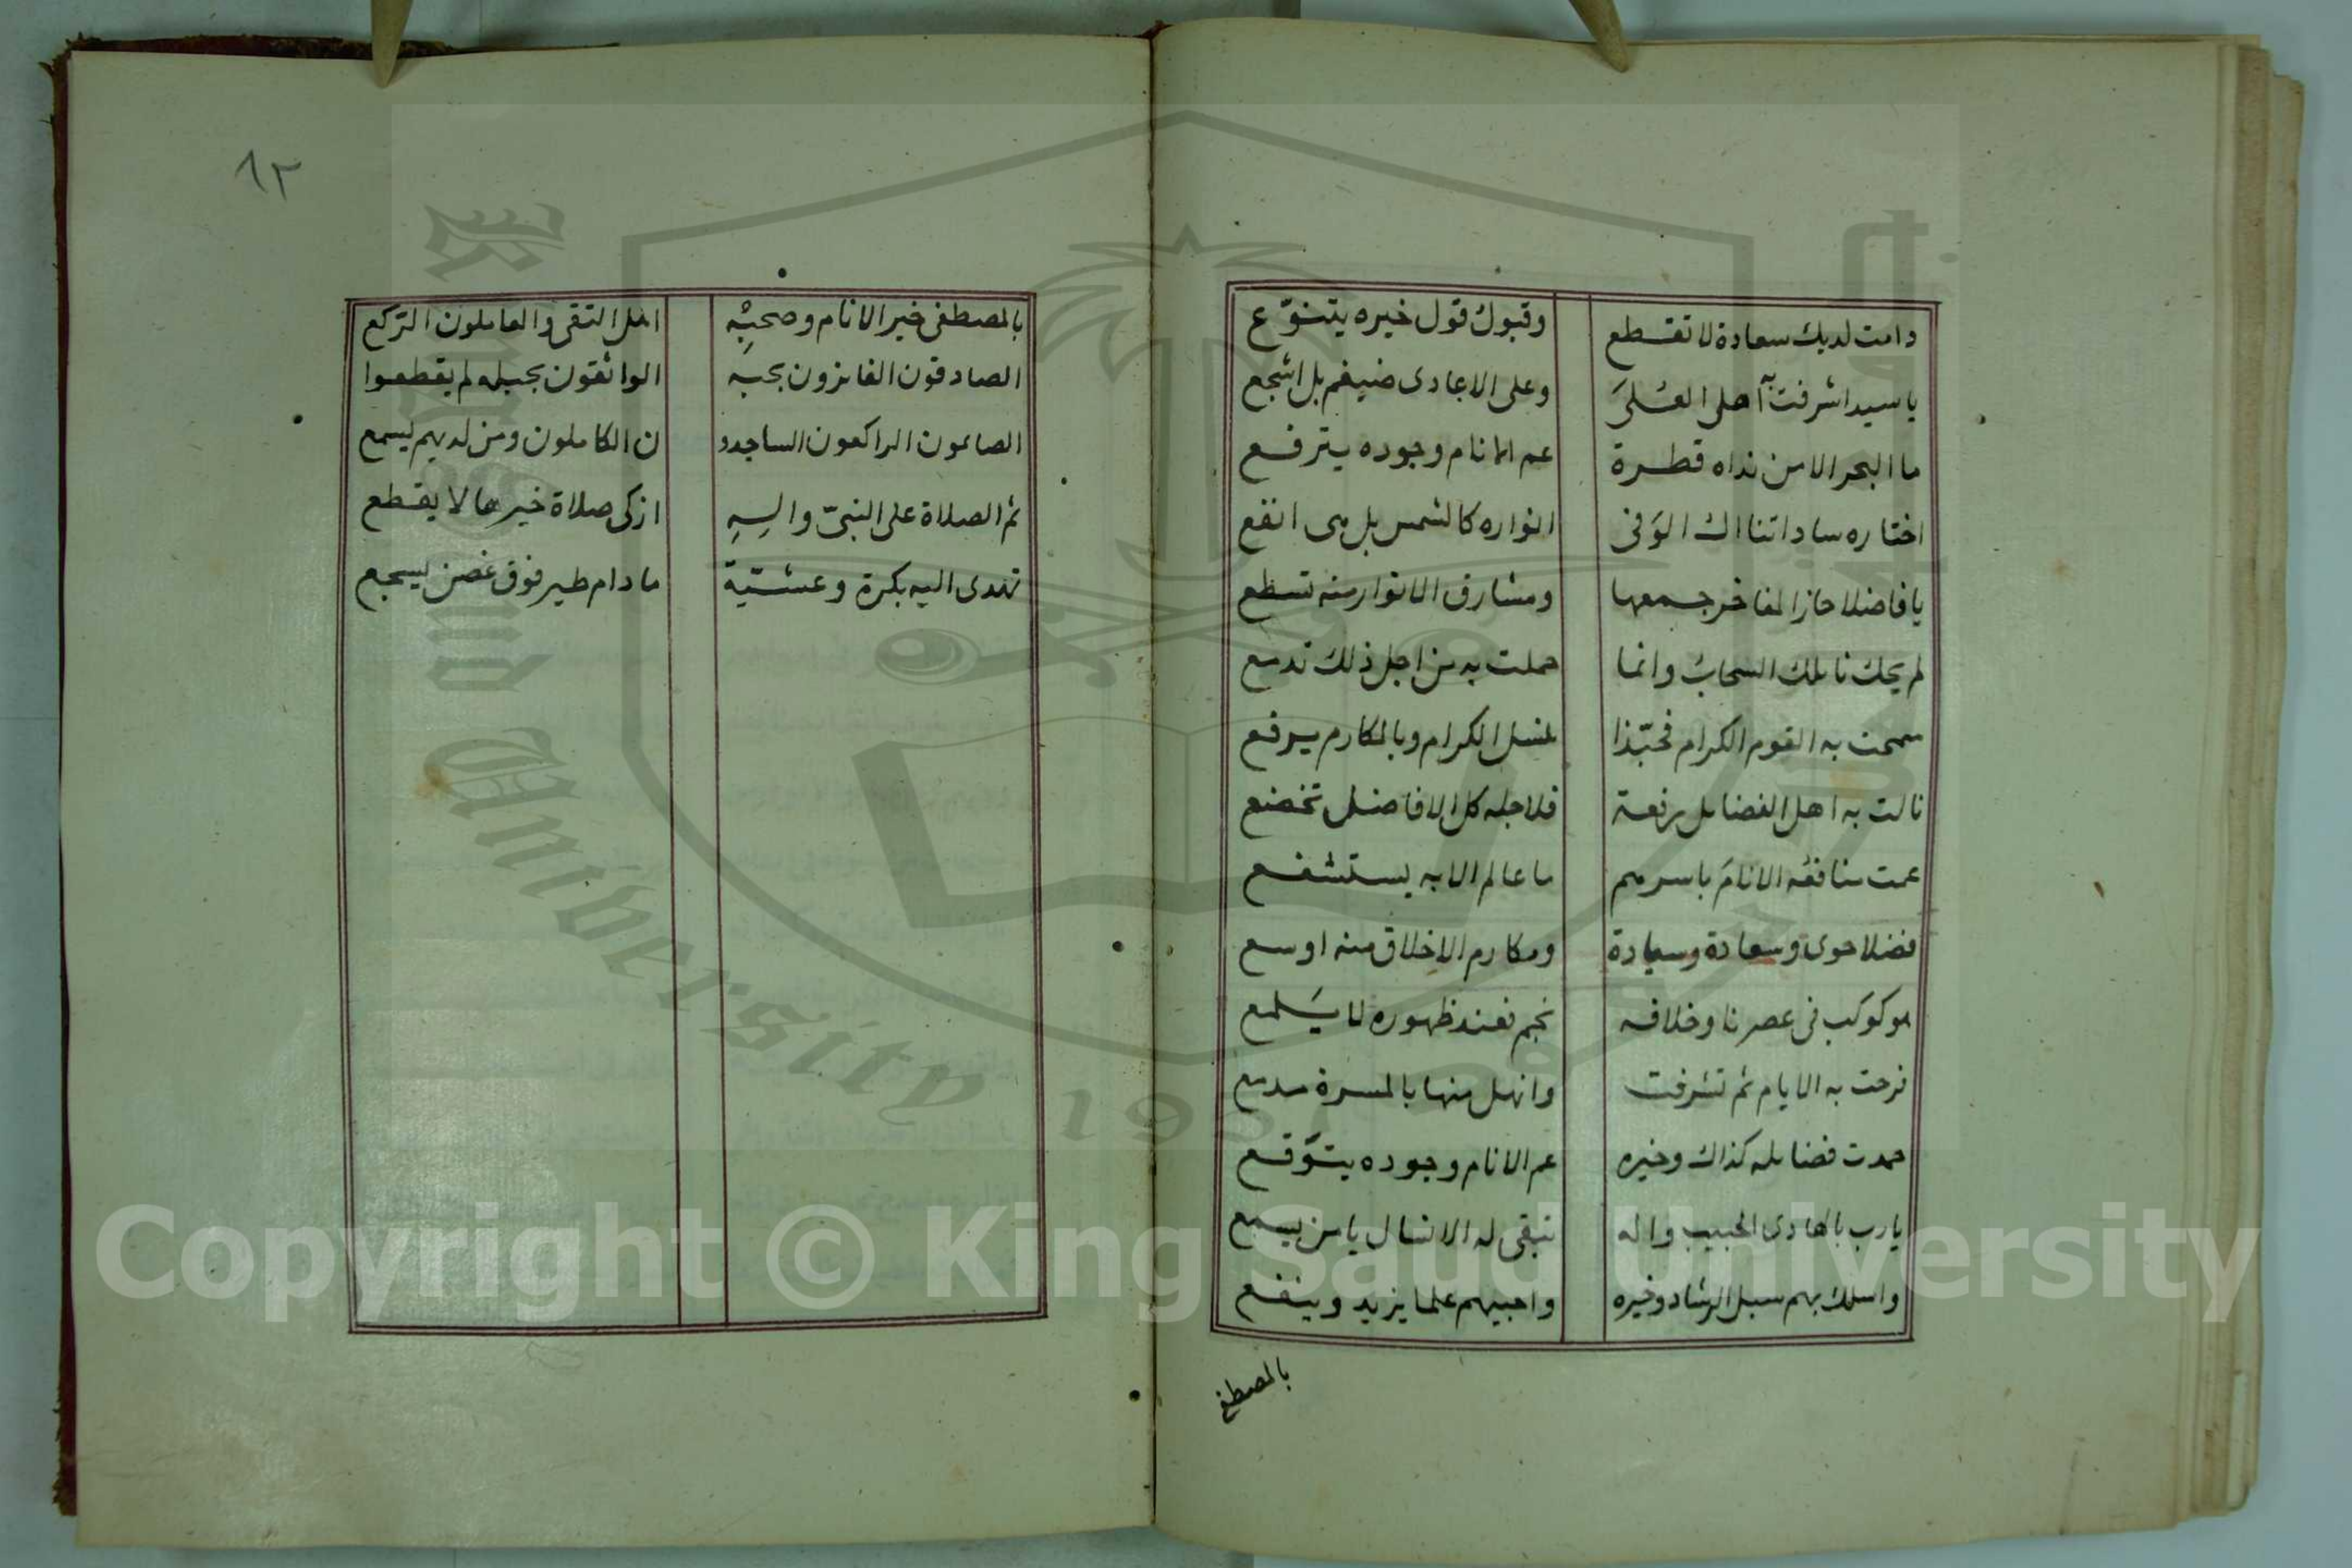 دامت لديك سعادة لا تقطع وقبول قول خيره يتنوّع
يا سيدا شرفت به اهل العُلىَ وعلى الاعادى ضيغم بل اشجع
ما البحر الا من نداه قطرة عم الانام وجوده يترفع
اختاره ساداتنا الوَفى انواره كالشمس بل هى انفع
يا فاضلا حاز المفاخر جمعها ومشارق الانوار منه تسطع
لم يحك نائلك السحابُ وانما حملت به من اجل ذلك تدمع
سمحت به القوم الكرام فحبّذا نسل الكرام وبالمكارم يرفع
نالت به اهل الفضايل رفعة فلاجله كل الافاضل تخضع
عمت منافعُه الانامَ باسرهم ما عالم الا به يستشفع
فضلا حوى وسعادة وسيادة ومكارم الاخلاق منه اوسع
هو كوكب فى عصرنا وخلافه نجم فعند ظهوره لا يَلمع
فرحت به الايام ثم تشرفت وانهل منها بالمسرة مدمع
حمدت فضايله كذاك وخيره عم الانام وجوده يتوّقع
يارب بالهادى الحبيب واله تبقى له الانسال يا من يسمع
واسلك بهم سبل الرشاد وخيره واحبيهم علما يزيد وينفع
بالمصطفى
٨٢
بالمصطفى خير الانام وصحبِه اهل التقى والعاملون الرّكع
الصادقون الفايزون بحبه الواثقون بحبله لم يقطعوا
الصايمون الراكعون الساجدو ن الكاملون ومن لديهم يسمع
ثم الصلاة على النبىّ والِهِ ازكى صلاة خيرها لا يقطع
تهدى اليه بكرة وعشيّة ما دام طير فوق غصن يسجع
Copyright © King Saud University
University 195